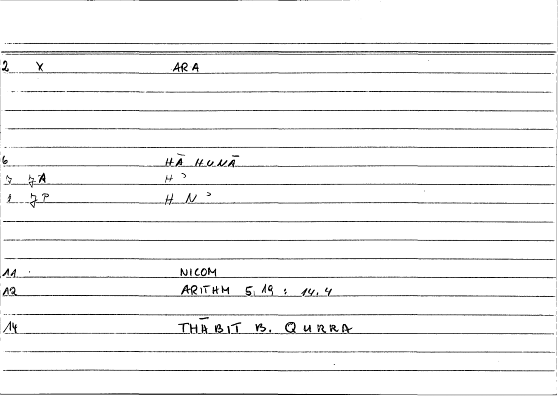 2 X ARA
6 HĀ HUNĀ
7 JA H ʾ
JP H N ʾ
11 NICOM
12 ARITHM 5,19 : 14.4
14 THĀBIT B. QURRA